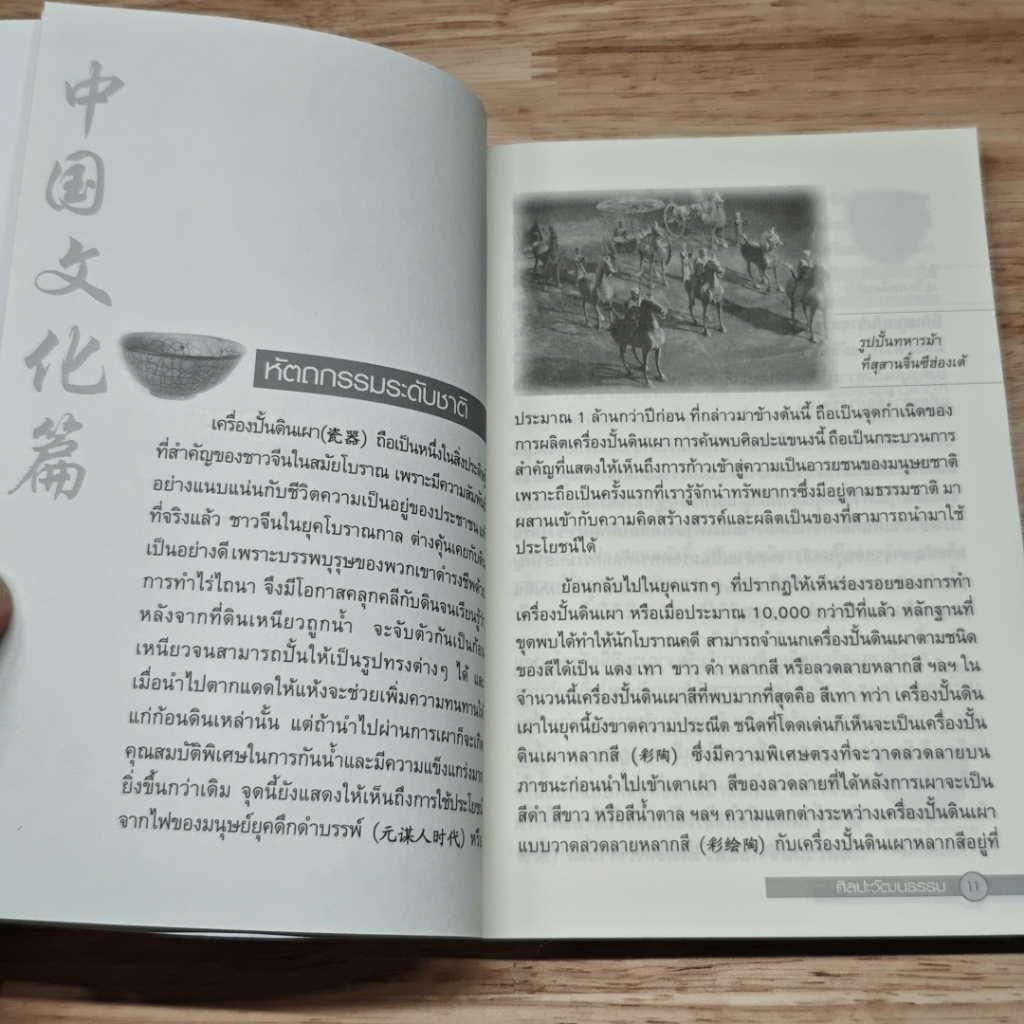 中国文化篇
หัตถกรรมระดับชาติ
เครื่องปั้นดินเผา(瓷器) ถือเป็นหนึ่งในสิ่งประดิษฐ์
ที่สำคัญของชาวจีนในสมัยโบราณ เพราะมีความสัมพันธ์
อย่างแนบแน่นกับชีวิตความเป็นอยู่ของประชาชน
ที่จริงแล้ว ชาวจีนในยุคโบราณกาล ต่างคุ้นเคยกับดิน
เป็นอย่างดี เพราะบรรพบุรุษของพวกเขาดำรงชีพด้วย
การทำไร่ไถนา จึงมีโอกาสคลุกคลีกับดินจนเรียนรู้ว่า
หลังจากที่ดินเหนียวถูกน้ำ จะจับตัวกันเป็นก้อน
เหนียวจนสามารถปั้นให้เป็นรูปทรงต่างๆ ได้ และ
เมื่อนำไปตากแดดให้แห้งจะช่วยเพิ่มความทนทานให้
แก่ก้อนดินเหล่านั้น แต่ถ้านำไปผ่านการเผาก็จะเกิด
คุณสมบัติพิเศษในการกันน้ำและมีความแข็งแกร่งมาก
ยิ่งขึ้นกว่าเดิม จุดนี้ยังแสดงให้เห็นถึงการใช้ประโยชน์
จากไฟของมนุษย์ยุคดึกดำบรรพ์ (元谋人时代) หรือ
รูปปั้นทหารม้า
ที่สุสานจิ๋นซีฮ่องเต้
ประมาณ 1 ล้านกว่าปีก่อน ที่กล่าวมาข้างต้นนี้ ถือเป็นจุดกำเนิดของ
การผลิตเครื่องปั้นดินเผา การค้นพบศิลปะแขนงนี้ ถือเป็นกระบวนการ
สำคัญที่แสดงให้เห็นถึงการก้าวเข้าสู่ความเป็นอารยชนของมนุษยชาติ
เพราะถือเป็นครั้งแรกที่เรารู้จักนำทรัพยากรซึ่งมีอยู่ตามธรรมชาติ มา
ผสานเข้ากับความคิดสร้างสรรค์และผลิตเป็นของที่สามารถนำมาใช้
ประโยชน์ได้
ย้อนกลับไปในยุคแรกๆ ที่ปรากฏให้เห็นร่องรอยของการทำ
เครื่องปั้นดินเผา หรือเมื่อประมาณ 10,000 กว่าปีที่แล้ว หลักฐานที่
ขุดพบได้ทำให้นักโบราณคดี สามารถจำแนกเครื่องปั้นดินเผาตามชนิด
ของสีได้เป็น แดง เทา ขาว ดำ หลากสี หรือลวดลายหลากสี ฯลฯ ใน
จำนวนนี้เครื่องปั้นดินเผาสีที่พบมากที่สุดคือ สีเทา ทว่า เครื่องปั้นดิน
เผาในยุคนี้ยังขาดความประณีต ชนิดที่โดดเด่นก็เห็นจะเป็นเครื่องปั้น
ดินเผาหลากสี (彩陶) ซึ่งมีความพิเศษตรงที่จะวาดลวดลายบน
ภาชนะก่อนนำไปเข้าเตาเผา สีของลวดลายที่ได้หลังการเผาจะเป็น
สีดำ สีขาว หรือสีน้ำตาล ฯลฯ ความแตกต่างระหว่างเครื่องปั้นดินเผา
แบบวาดลวดลายหลากสี (彩绘陶) กับเครื่องปั้นดินเผาหลากสีอยู่ที่
ศิลปะวัฒนธรรม 11